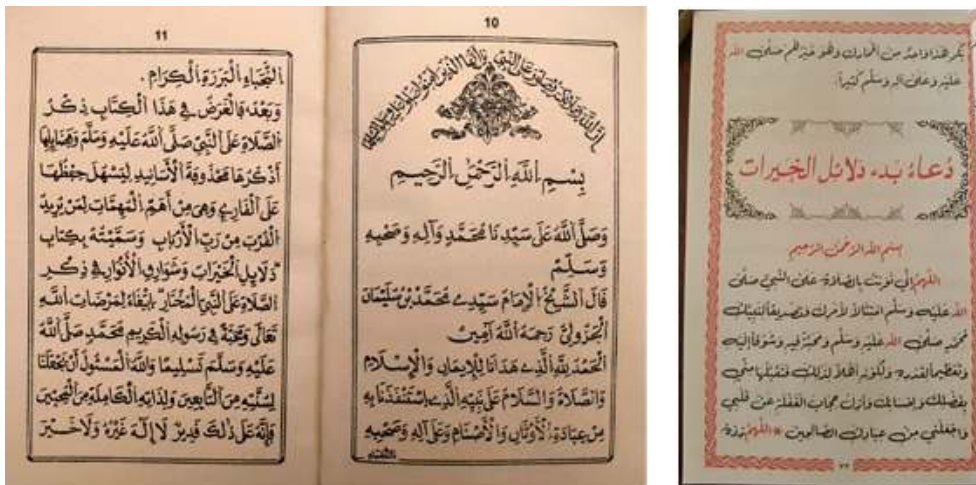 10
إن الله وملائكته يصلون على النبي يا أيها الذين آمنوا صلوا عليه وسلموا تسليما
بِسْمِ اللَّهِ الرَّحْمَنِ الرَّحِيمِ
وَصَلَّى اللَّهُ عَلَى سَيِّدِنَا مُحَمَّدٍ وَآلِهِ وَصَحْبِهِ
وَسَلَّمَ
قَالَ الشَّيْخُ الْإِمَامُ سَيِّدِي مُحَمَّدُ بْنُ سُلَيْمَانَ
الْجَزُولِيُّ رَحِمَهُ اللَّهُ آمِينَ
الْحَمْدُ لِلَّهِ الَّذِي هَدَانَا لِلْإِيمَانِ وَالْإِسْلَامِ
وَالصَّلَاةُ وَالسَّلَامُ عَلَى نَبِيِّهِ الَّذِي اسْتَنْقَذَنَا بِهِ
مِنْ عِبَادَةِ الْأَوْثَانِ وَالْأَصْنَامِ وَعَلَى آلِهِ وَصَحْبِهِ
النُّجَبَاءِ
11
النُّجَبَاءِ الْبَرَرَةِ الْكِرَامِ.
وَبَعْدُ فَالْغَرَضُ فِي هَذَا الْكِتَابِ ذِكْرُ
الصَّلَاةِ عَلَى النَّبِيِّ صَلَّى اللَّهُ عَلَيْهِ وَسَلَّمَ وَفَضَائِلِهَا
أَذْكُرُهَا مَحْذُوفَةَ الْأَسَانِيدِ لِيَسْهُلَ حِفْظُهَا
عَلَى الْقَارِي وَهِيَ مِنْ أَهَمِّ الْمُهِمَّاتِ لِمَنْ يُرِيدُ
الْقُرْبَ مِنْ رَبِّ الْأَرْبَابِ وَسَمَّيْتُهُ بِكِتَابِ
"دَلَايِلِ الْخَيْرَاتِ وَشَوَارِقِ الْأَنْوَارِ فِي ذِكْرِ
الصَّلَاةِ عَلَى النَّبِيِّ الْمُخْتَارِ" ابْتِغَاءً لِمَرْضَاتِ اللَّهِ
تَعَالَى وَمَحَبَّةً فِي رَسُولِهِ الْكَرِيمِ مُحَمَّدٍ صَلَّى اللَّهُ
عَلَيْهِ وَسَلَّمَ تَسْلِيمًا وَاللَّهُ الْمَسْئُولُ أَنْ يَجْعَلَنَا
لِسُنَّتِهِ مِنَ التَّابِعِينَ وَلِذَاتِهِ الْكَامِلَةِ مِنَ الْمُحِبِّينَ
فَإِنَّهُ عَلَى ذَلِكَ قَدِيرٌ لَا إِلَهَ غَيْرُهُ وَلَا خَيْرَ
صلى الله
عليه وعلى آله وسلم كثيرا
دُعَاءُ بَدْءِ دَلَائِلِ الْخَيْرَاتِ
بسم الله الرحمن الرحيم
اللهم إني نويت بالصلاة على النبي صلى
الله عليه وسلم امتثالا لأمرك وتصديقا لنبيك
محمد صلى الله عليه وسلم ومحبة فيه وشوقا إليه
وتعظيما لقدره ولكونه أهلا لذلك فتقبلها مني
بفضلك وإحسانك وأزل حجاب الغفلة عن قلبي
واجعلني من عبادك الصالحين * اللهم زده
٢٣